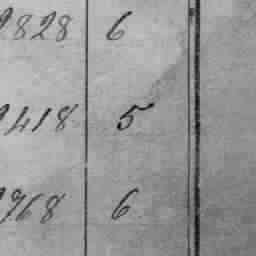 2828 6
2418 5
2768 6